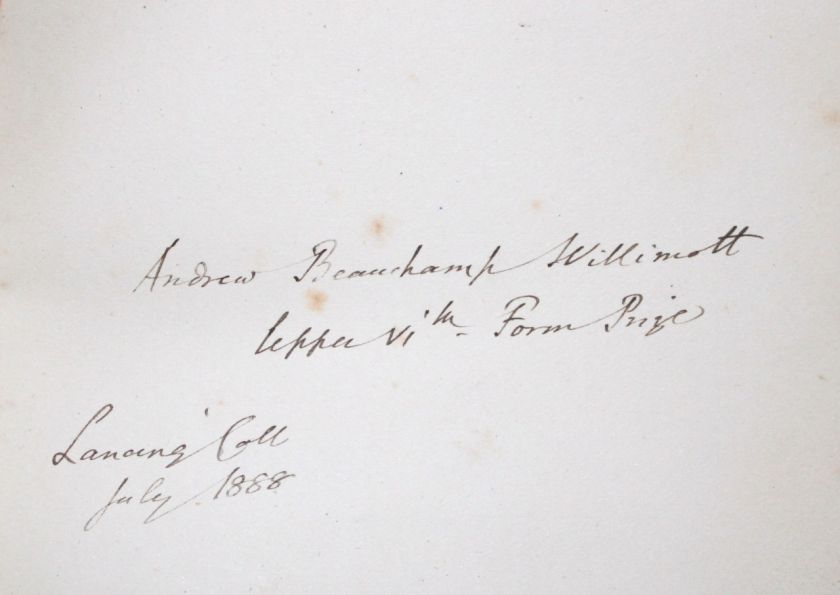 Andrew Beauchamp Willimott
Upper VIth Form Prize
Lancing Coll
July 1888